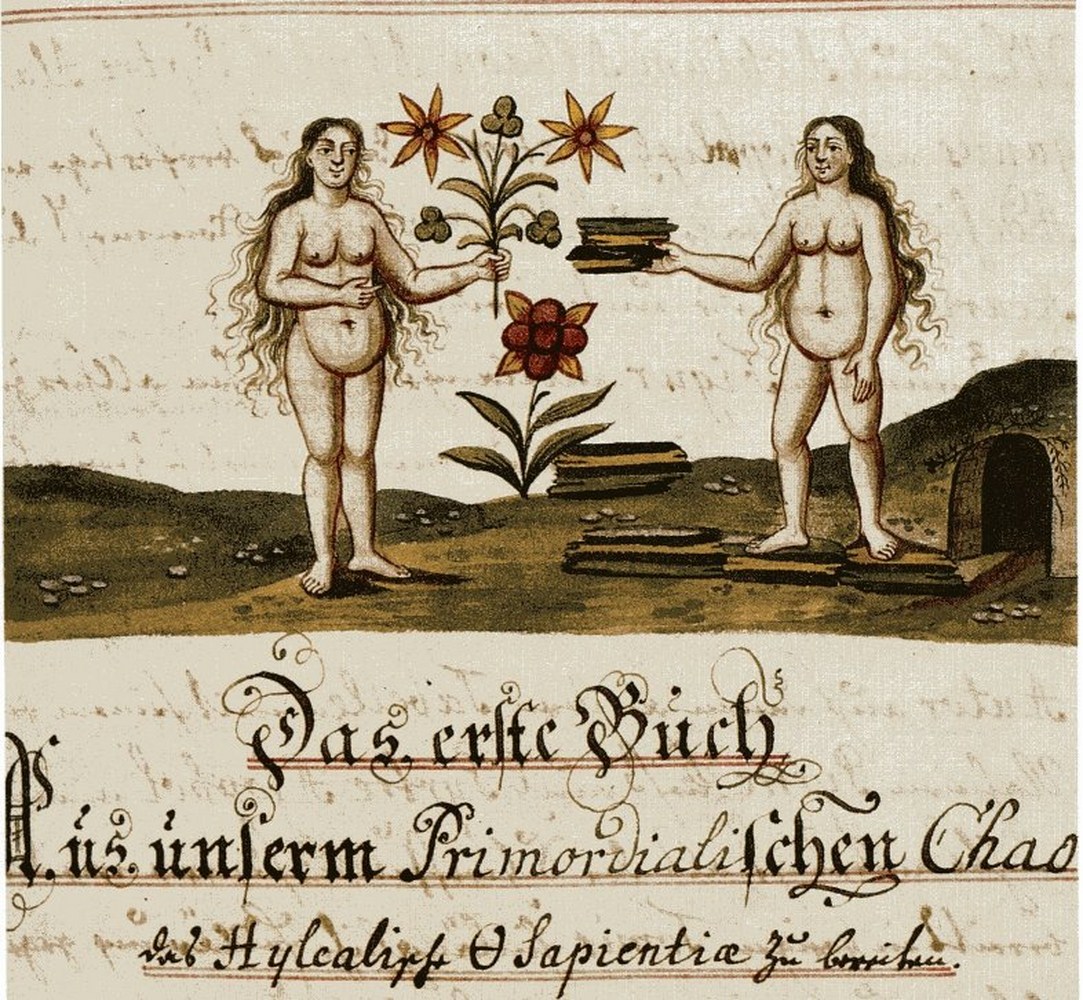 Das erste Buch
Aus unserm Primordialischen Chao
das Hylealische 🜔 Sapientiæ zu bereiten.